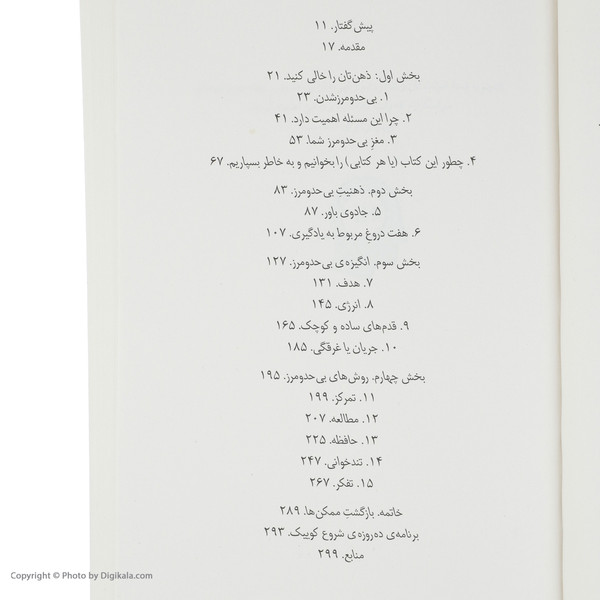 پیش‌گفتار. ۱۱
مقدمه. ۱۷
بخش اول: ذهن‌تان را خالی کنید. ۲۱
۱. بی‌حدومرزشدن. ۲۳
۲. چرا این مسئله اهمیت دارد. ۴۱
۳. مغزِ بی‌حدومرز شما. ۵۳
۴. چطور این کتاب (یا هر کتابی) را بخوانیم و به خاطر بسپاریم. ۶۷
بخش دوم. ذهنیتِ بی‌حدومرز. ۸۳
۵. جادوی باور. ۸۷
۶. هفت دروغِ مربوط به یادگیری. ۱۰۷
بخش سوم. انگیزه‌ی بی‌حدومرز. ۱۲۷
۷. هدف. ۱۳۱
۸. انرژی. ۱۴۵
۹. قدم‌های ساده و کوچک. ۱۶۵
۱۰. جریان یا غرقگی. ۱۸۵
بخش چهارم. روش‌های بی‌حدومرز. ۱۹۵
۱۱. تمرکز. ۱۹۹
۱۲. مطالعه. ۲۰۷
۱۳. حافظه. ۲۲۵
۱۴. تندخوانی. ۲۴۷
۱۵. تفکر. ۲۶۷
خاتمه. بازگشتِ ممکن‌ها. ۲۸۹
برنامه‌ی ده‌روزه‌ی شروع کوییک. ۲۹۳
منابع. ۲۹۹
Copyright © Photo by Digikala.com